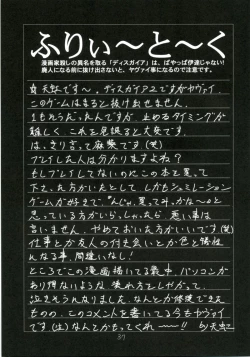 ふりぃ～と～く
漫画家殺しの異名を取る「ディスガイア」は、ぱやっぱ伊達じゃない!
廃人になる前に抜け出さないと、ヤヴァイ事になるので注意です。
天虹です～、ディスガイア2ですがヤヴァイ
このゲームはまると抜け出せません。
1もそうだったんですが、止めるタイミングが
難しく、これを見誤ると大変です。
は、きり言って麻薬です(笑)
プレイした人は分かりますよね?
もしプレイしてないのにこの本を買って
下さった方がいたとして しかもシュミレーション
ゲームが好きで、"んじゃ、買ってみっかな～"と
思っている方がいらっしゃったら 悪い事は
言いません、やめておいた方がいいです(笑)
仕事とか友人の付き合いとか色々犠牲
になる事、間違いなし!
ところでこの漫画描いてる最中、パソコンが
あり得ないような壊れ方をしやがって、
泣きそうになりました、なんとか修理できた
ものの、このコメントを書いてる今もヤヴァイ
です(泣)なんとかもってくれ～～!! by天虹
37